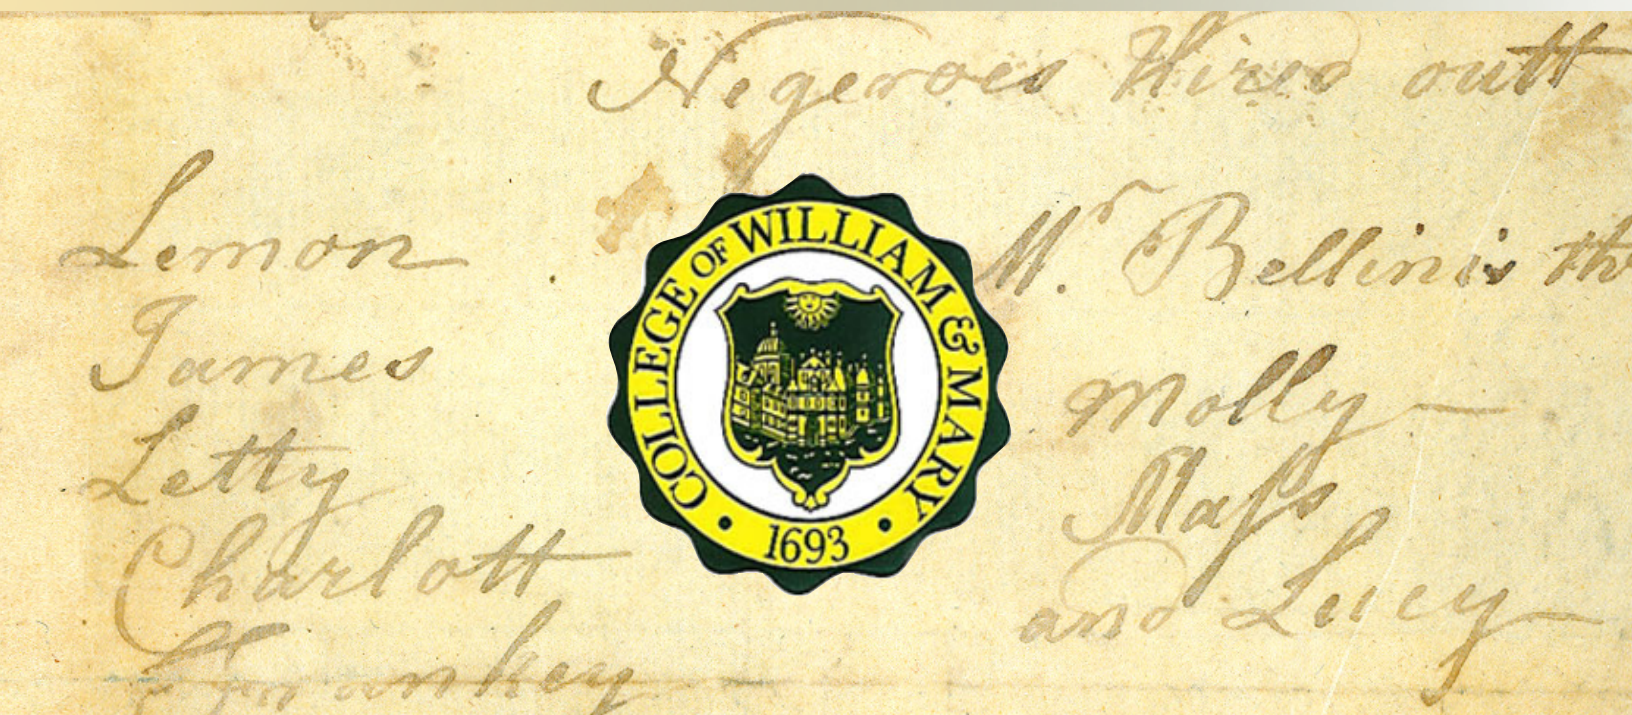 Negeroes Hired outt
Lemon
James
Letty
Charlott
Frankey
COLLEGE OF WILLIAM & MARY
1693
Mr Bellini's
Molly
Maſs
and Lucy